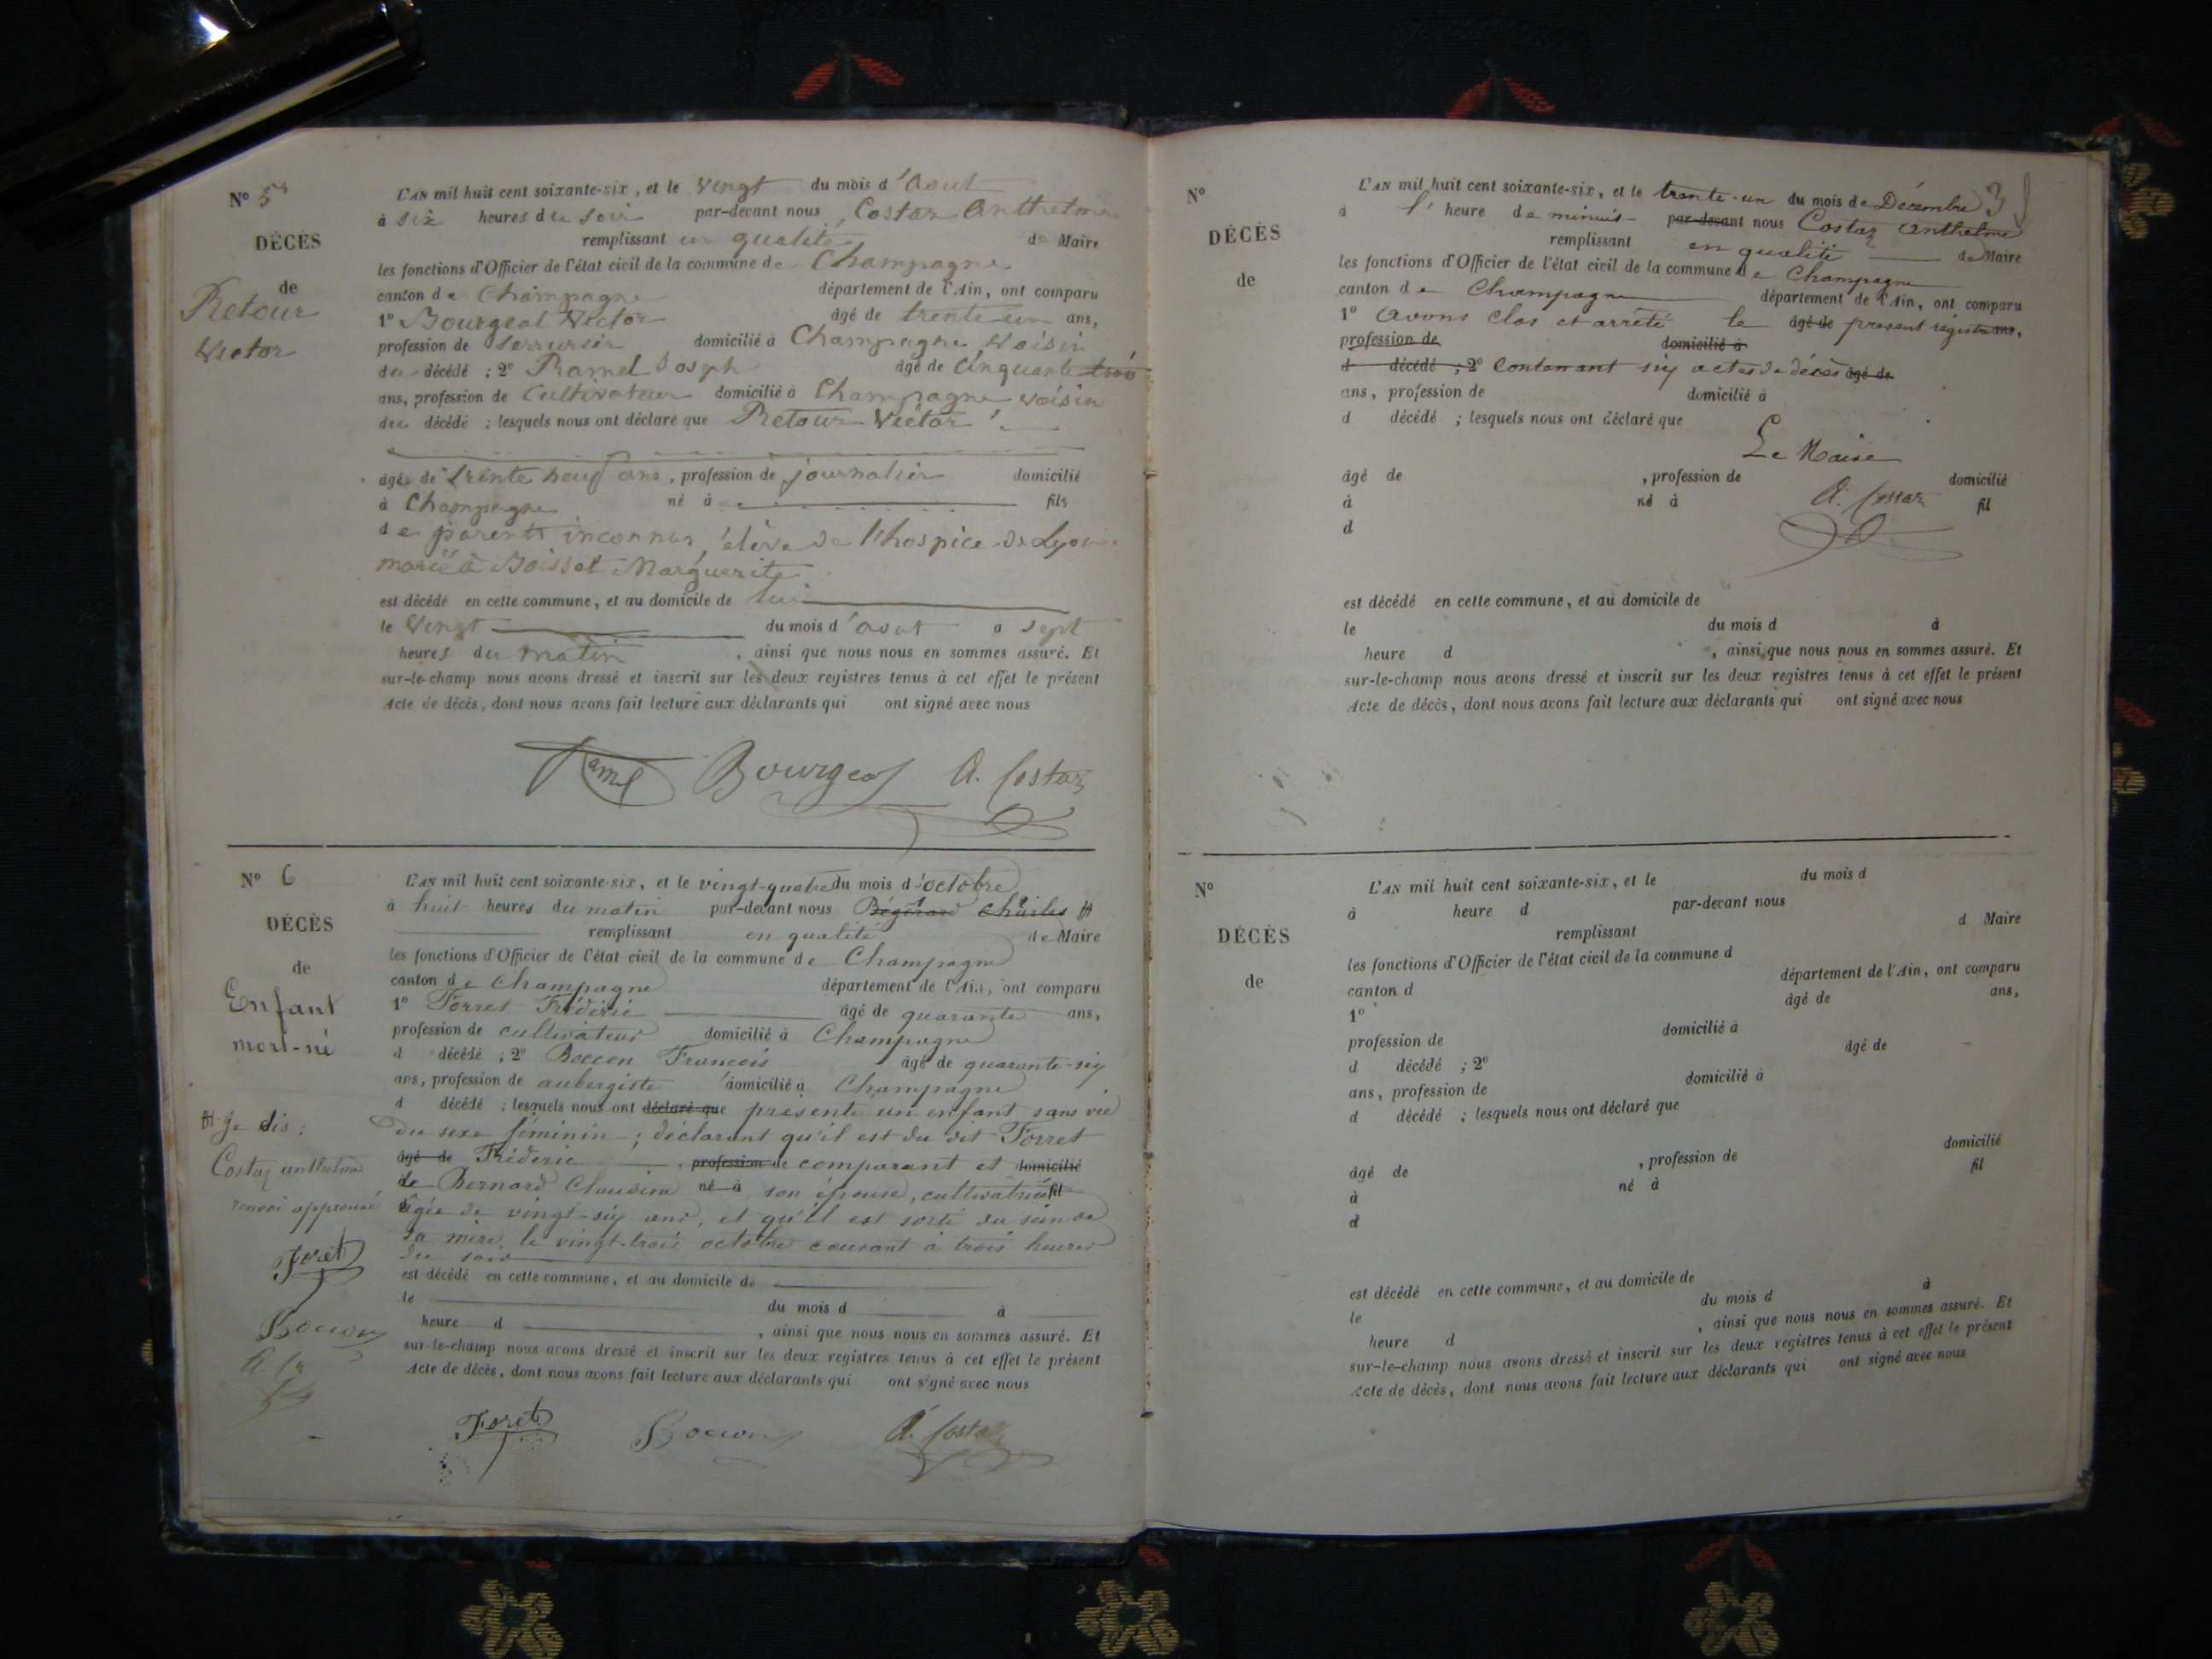 N° 5
DÉCÈS
de
Retour
Victor
L'AN mil huit cent soixante-six, et le vingt du mois d'Aout
à six heures du soir par-devant nous, Costaz Anthelme
remplissant en qualité de Maire
les fonctions d'Officier de l'état civil de la commune de Champagne
canton de Champagne département de l'Ain, ont comparu
1° Bourgeat Victor âgé de trente un ans,
profession de serrurier domicilié à Champagne Voisin
du décédé ; 2° Ramel Josph âgé de Cinquante trois
ans, profession de Cultivateur domicilié à Champagne voisin
du décédé ; lesquels nous ont déclaré que Retour Victor
âgé de trente neuf ans, profession de journalier domicilié
à Champagne né à fils
de parents inconnus, élève de l'hospice de Lyon
marié à Boissat Marguerite
est décédé en cette commune, et au domicile de lui
le Vingt du mois d'aout à sept
heures du matin, ainsi que nous nous en sommes assuré. Et
sur-le-champ nous avons dressé et inscrit sur les deux registres tenus à cet effet le présent
Acte de décès, dont nous avons fait lecture aux déclarants qui ont signé avec nous
Ramel Bourgeat A. Costaz
N° 6
DÉCÈS
de
Enfant
mort-né
L'AN mil huit cent soixante-six, et le vingt-quatre du mois d'octobre
à huit heures du matin par-devant nous Charles
remplissant en qualité de Maire
les fonctions d'Officier de l'état civil de la commune de Champagne
canton de Champagne département de l'Ain, ont comparu
1° Forret Fréderic âgé de quarante ans,
profession de cultivateur domicilié à Champagne
d décédé ; 2° Boccon François âgé de quarante-six
ans, profession de aubergiste domicilié à Champagne
d décédé ; lesquels nous ont déclaré que présenté un enfant sans vie
du sexe féminin ; déclarant qu'il est du dit Forret
âgé de Fréderic, profession de comparant et domicilié
de Bernard Claudine né à son épouse, cultivatrice fil
âgée de vingt-six ans, et qu'il est sorti du sein de
sa mère le vingt-trois octobre courant à trois heures
du soir
est décédé en cette commune, et au domicile de
le du mois d à
heure d , ainsi que nous nous en sommes assuré. Et
sur-le-champ nous avons dressé et inscrit sur les deux registres tenus à cet effet le présent
Acte de décès, dont nous avons fait lecture aux déclarants qui ont signé avec nous
Je dis :
Costaz anthelme
renvoi approuvé
Foret
Boccon
Foret Boccon A. Costaz
N°
DÉCÈS
de
L'AN mil huit cent soixante-six, et le trente-un du mois de Décembre 3
à l'heure de minuit par-devant nous Costaz Anthelme
remplissant en qualité de Maire
les fonctions d'Officier de l'état civil de la commune de Champagne
canton de Champagne département de l'Ain, ont comparu
1° Avons clos et arrêté le âgé de présent registre ans,
profession de domicilié à
d décédé ; 2° Contenant six actes de décès âgé de
ans, profession de domicilié à
d décédé ; lesquels nous ont déclaré que
Le Maire
âgé de , profession de domicilié
à né à A. Costaz fil
d
est décédé en cette commune, et au domicile de
le du mois d à
heure d , ainsi que nous nous en sommes assuré. Et
sur-le-champ nous avons dressé et inscrit sur les deux registres tenus à cet effet le présent
Acte de décès, dont nous avons fait lecture aux déclarants qui ont signé avec nous
N°
DÉCÈS
de
L'AN mil huit cent soixante-six, et le du mois d
à heure d par-devant nous
remplissant d Maire
les fonctions d'Officier de l'état civil de la commune d
canton d département de l'Ain, ont comparu
1° âgé de ans,
profession de domicilié à
d décédé ; 2° âgé de
ans, profession de domicilié à
d décédé ; lesquels nous ont déclaré que
âgé de , profession de domicilié
à né à fil
d
est décédé en cette commune, et au domicile de
le du mois d à
heure d , ainsi que nous nous en sommes assuré. Et
sur-le-champ nous avons dressé et inscrit sur les deux registres tenus à cet effet le présent
Acte de décès, dont nous avons fait lecture aux déclarants qui ont signé avec nous